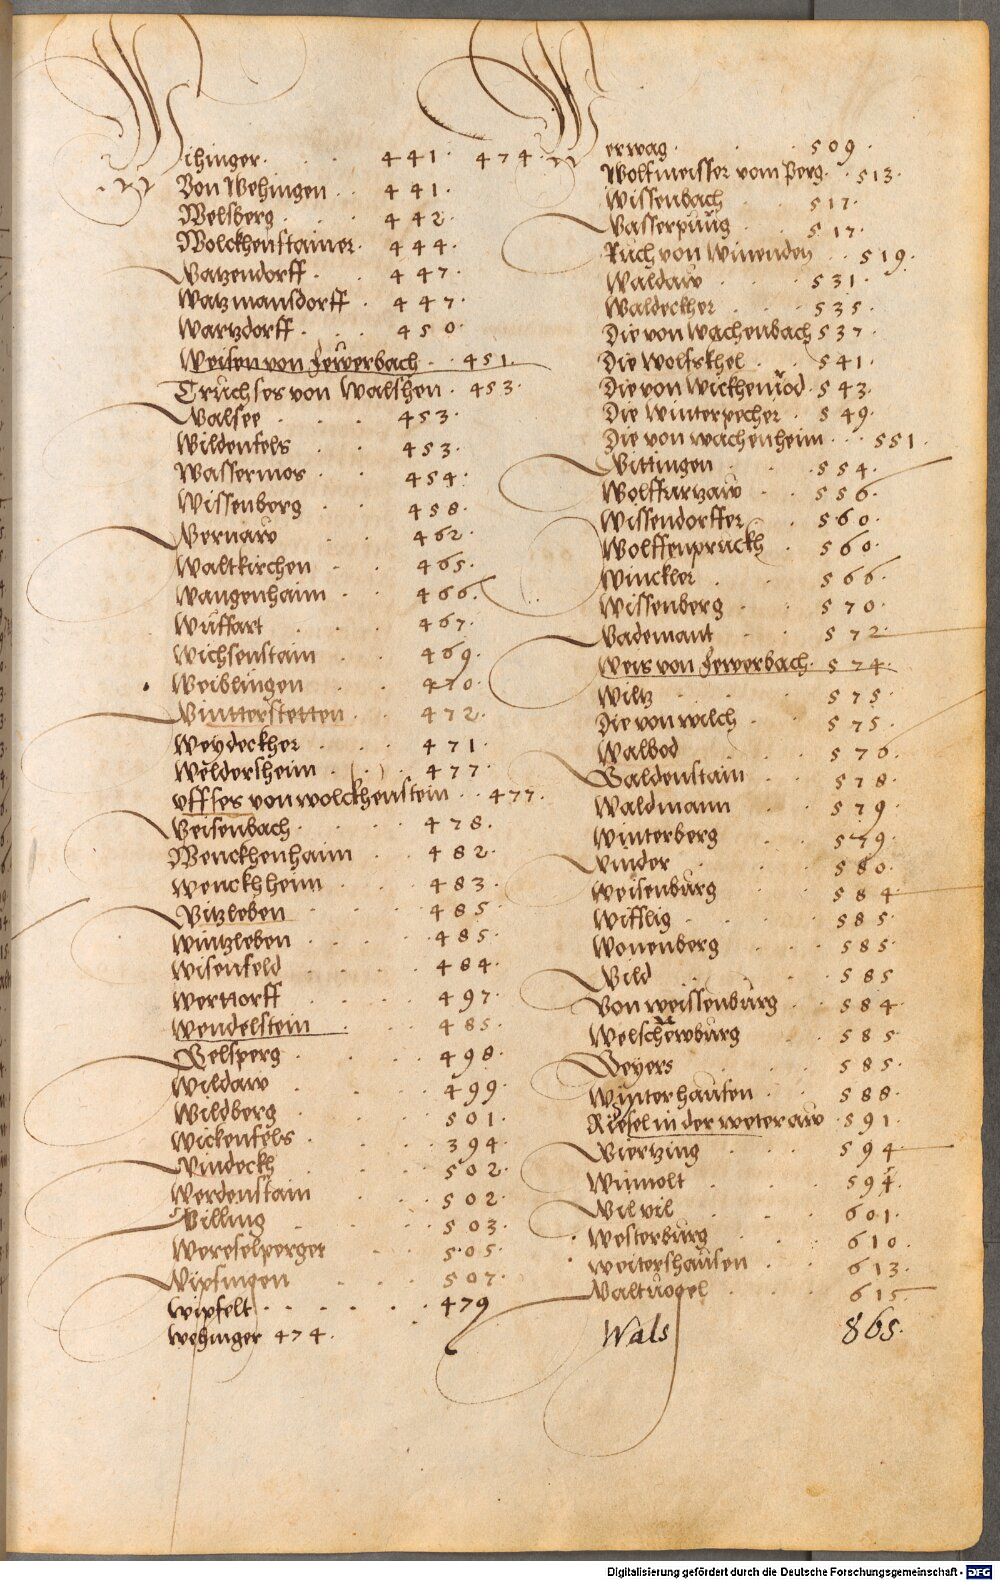 Wihinger · 441 · 474 ·
Von Wehingen · 441 ·
Welsberg · 442 ·
Wolckhenstainer · 444 ·
Watzendorff · 447 ·
Watzmansdorff · 447 ·
Wartzdorff · 450 ·
Weisen von Fewerbach · 451
Truchses von Walshen · 453 ·
Walsee · 453 ·
Wildenfels · 453 ·
Wassermos · 454 ·
Wissenberg · 458 ·
Wernaw · 462 ·
Waltkirchen · 465 ·
Wangenhaim · 466
Wuffart · 467 ·
Wichsenstain · 469 ·
Weiblingen · 470
Wintterstetten · 472 ·
Weydeckher · 471 ·
Weldersheim · 477 ·
Uffses von wolckhenstein · 477 ·
Weisenbach · 478 ·
Wenckhenhaim · 482 ·
Wenckhheim · 483 ·
Witzleben · 485 ·
Wintzleben · 485 ·
Wisenfeld · 484 ·
Wertorff · 497 ·
Wendelstein · 485 ·
Welsperg · 498 ·
Wildaw · 499 ·
Wildberg · 501 ·
Wickenfels · 394 ·
Windeckh · 502 ·
Werdenstain · 502 ·
Willing · 503 ·
Wereselperger · 505 ·
Wipfingen · 507 ·
Wipfelt · 479
Wehinger 474 ·
Werwag · 509 ·
Wolfmeister vom Perg · 513 ·
Wissenbach · 517 ·
Wasserpurg · 517 ·
Ruch von Winenden · 519 ·
Waldaw · 531 ·
Waldeckher · 535 ·
Die von Wachenbach 537 ·
Die Wolfskhel · 541 ·
Die von Wickhenrod · 543 ·
Die Winterpecher · 549 ·
Die von wachenheim · 551 ·
Wittingen · 554 ·
Wolffartzaw · 556 ·
Wissendorffer · 560 ·
Wolffenpruckh · 560 ·
Winckler · 566 ·
Wissenberg · 570 ·
Wademant · 572
Weis von Fewerbach · 574 ·
Wiltz · 575 ·
Die von wilch · 575 ·
Walbod · 570 ·
Waldenstain · 578 ·
Waldmann · 579 ·
Winterberg · 579 ·
Winder · 580 ·
Weisenburg · 584
Wifflig · 585 ·
Wonenberg · 585 ·
Wild · 585
Von weissenburg · 584 ·
Welschewburg · 585
Weyers · 585 ·
Winterhausen · 588 ·
Riesel in der weteraw · 591 ·
Wiertzing · 594
Winnolt · 594 ·
Wilvil · 601 ·
Westerburg · 610 ·
Weitershausen · 613 ·
Waltvogel · 615
Wals 865 ·
Digitalisierung gefördert durch die Deutsche Forschungsgemeinschaft - DFG